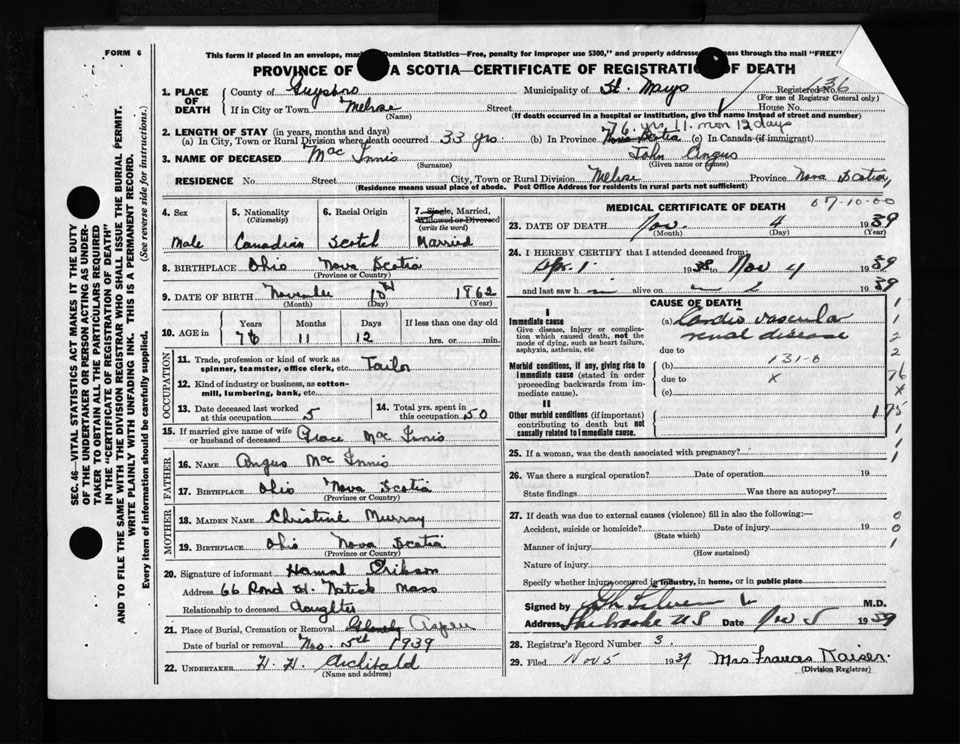 FORM 6
This form if placed in an envelope, mar Dominion Statistics—Free, penalty for improper use $300," and properly addresse pass through the mail "FREE"
PROVINCE OF VA SCOTIA—CERTIFICATE OF REGISTRATION OF DEATH
1. PLACE OF DEATH County of Guysboro Municipality of St. Marys Registered No. 636
(For use of Registrar General only)
If in City or Town Melrose Street House No.
(Name) (If death occurred in a hospital or institution, give the name instead of street and number)
76 yrs 11 mon 12 days
2. LENGTH OF STAY (in years, months and days)
(a) In City, Town or Rural Division where death occurred 33 yrs (b) In Province Nova Scotia (c) In Canada (if immigrant)
3. NAME OF DECEASED Mac Innis John Angus
(Surname) (Given name or names)
RESIDENCE No. Street City, Town or Rural Division Melrose Province Nova Scotia,
(Residence means usual place of abode. Post Office Address for residents in rural parts not sufficient)
4. Sex 5. Nationality (Citizenship) 6. Racial Origin 7. Single, Married, Widowed or Divorced (write the word)
Male Canadian Scotch Married
8. BIRTHPLACE Ohio Nova Scotia
(Province or Country)
9. DATE OF BIRTH November 10th 1862
(Month) (Day) (Year)
10. AGE in Years Months Days If less than one day old
76 11 12 hrs. or min.
OCCUPATION
11. Trade, profession or kind of work as spinner, teamster, office clerk, etc. Tailor
12. Kind of industry or business, as cotton-mill, lumbering, bank, etc.
13. Date deceased last worked at this occupation 5 14. Total yrs. spent in this occupation 50
15. If married give name of wife or husband of deceased Grace Mac Innis
FATHER
16. NAME Angus Mac Innis
17. BIRTHPLACE Ohio Nova Scotia
(Province or Country)
MOTHER
18. MAIDEN NAME Christine Murray
19. BIRTHPLACE Ohio Nova Scotia
(Province or Country)
20. Signature of informant
Address 66 Pond St. Natick Mass
Relationship to deceased daughter
21. Place of Burial, Cremation or Removal Aspen
Date of burial or removal Nov. 5th 1939
22. UNDERTAKER H. H. Archibald
(Name and address)
MEDICAL CERTIFICATE OF DEATH
07-10-00
23. DATE OF DEATH Nov. 4 1939
(Month) (Day) (Year)
24. I HEREBY CERTIFY that I attended deceased from
1938 Nov 4 1939
and last saw h alive on 1939
CAUSE OF DEATH
I
Immediate cause (a) Cardio vascular renal disease
Give disease, injury or complication which caused death, not the mode of dying, such as heart failure, asphyxia, asthenia, etc
due to
Morbid conditions, if any, giving rise to immediate cause (stated in order proceeding backwards from immediate cause). (b) 131-b
due to x
(c)
II
Other morbid conditions (if important) contributing to death but not causally related to immediate cause.
1
1
2
2
76
x
175
1
1
1
25. If a woman, was the death associated with pregnancy?
26. Was there a surgical operation? Date of operation 19
State findings Was there an autopsy?
27. If death was due to external causes (violence) fill in also the following:— 0
Accident, suicide or homicide? Date of injury 19 0
(State which)
Manner of injury 1
(How sustained)
Nature of injury
Specify whether injury occurred in industry, in home, or in public place
Signed by M.D.
Address Sherbrooke N S Date Nov 5 1939
28. Registrar's Record Number 3.
29. Filed Nov 5 1939 Mrs Frances Kaiser.
(Division Registrar)
SEC. 46—VITAL STATISTICS ACT MAKES IT THE DUTY
OF THE UNDERTAKER OR PERSON ACTING AS UNDER-
TAKER TO OBTAIN ALL THE PARTICULARS REQUIRED
IN THE "CERTIFICATE OF REGISTRATION OF DEATH"
AND TO FILE THE SAME WITH THE DIVISION REGISTRAR WHO SHALL ISSUE THE BURIAL PERMIT.
WRITE PLAINLY WITH UNFADING INK. THIS IS A PERMANENT RECORD.
Every item of information should be carefully supplied. (See reverse side for instructions.)